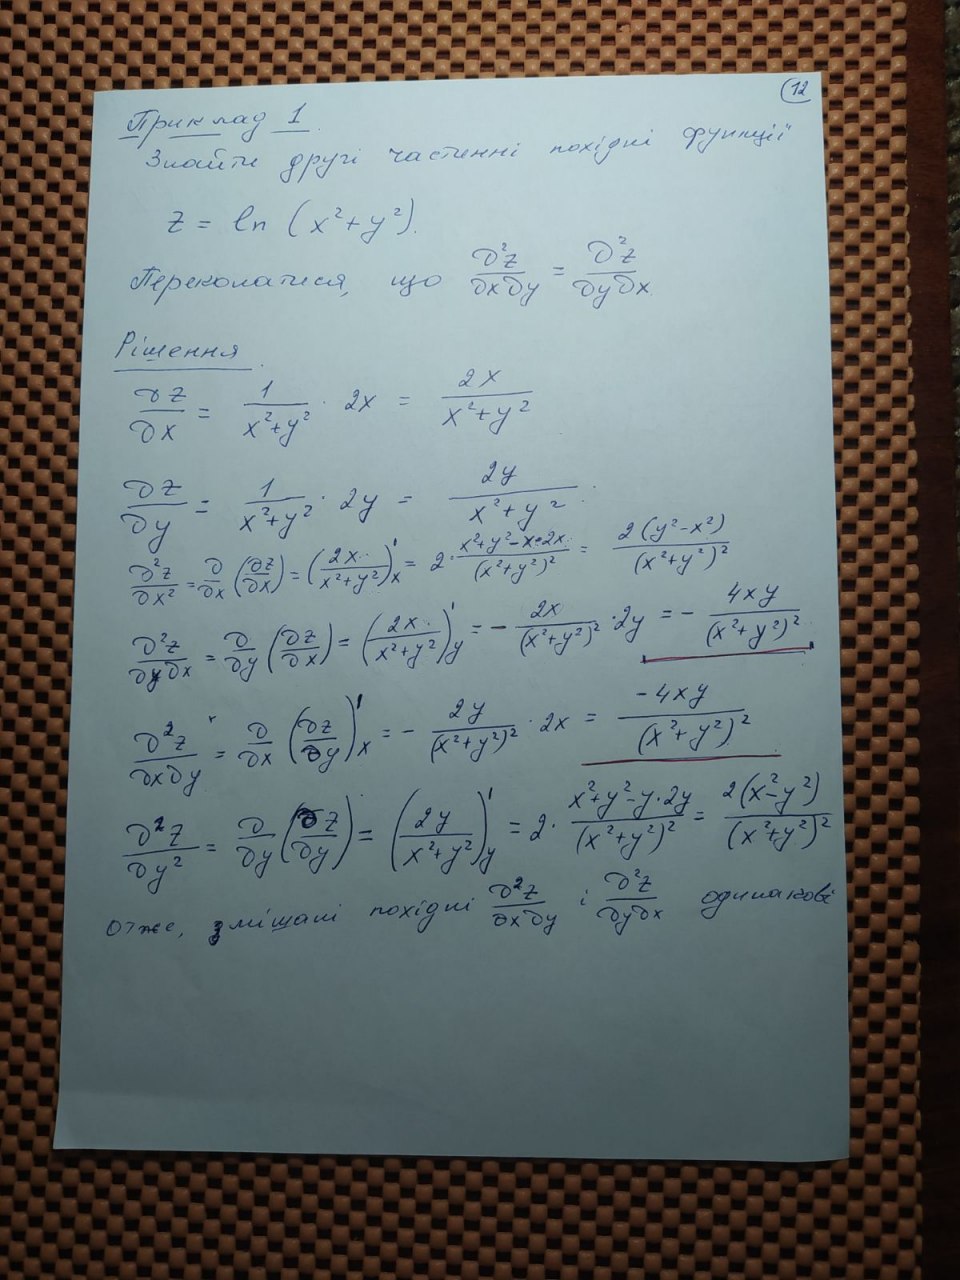 12
Приклад 1.
Знайти другі частинні похідні функції
z = ln (x² + y²).
Переконатися, що ∂²z/∂x∂y = ∂²z/∂y∂x
Рішення.
∂z/∂x = 1/(x²+y²) · 2x = 2x/(x²+y²)
∂z/∂y = 1/(x²+y²) · 2y = 2y/(x²+y²).
∂²z/∂x² = ∂/∂x (∂z/∂x) = (2x/(x²+y²))'ₓ = 2 · (x²+y²−x·2x)/(x²+y²)² = 2(y²−x²)/(x²+y²)²
∂²z/∂y∂x = ∂/∂y (∂z/∂x) = (2x/(x²+y²))'y = − 2x/(x²+y²)² · 2y = − 4xy/(x²+y²)²
∂²z/∂x∂y = ∂/∂x (∂z/∂y)'ₓ = − 2y/(x²+y²)² · 2x = −4xy/(x²+y²)²
∂²z/∂y² = ∂/∂y (∂z/∂y) = (2y/(x²+y²))'y = 2 · (x²+y²−y·2y)/(x²+y²)² = 2(x²−y²)/(x²+y²)²
отже, змішані похідні ∂²z/∂x∂y і ∂²z/∂y∂x одинакові